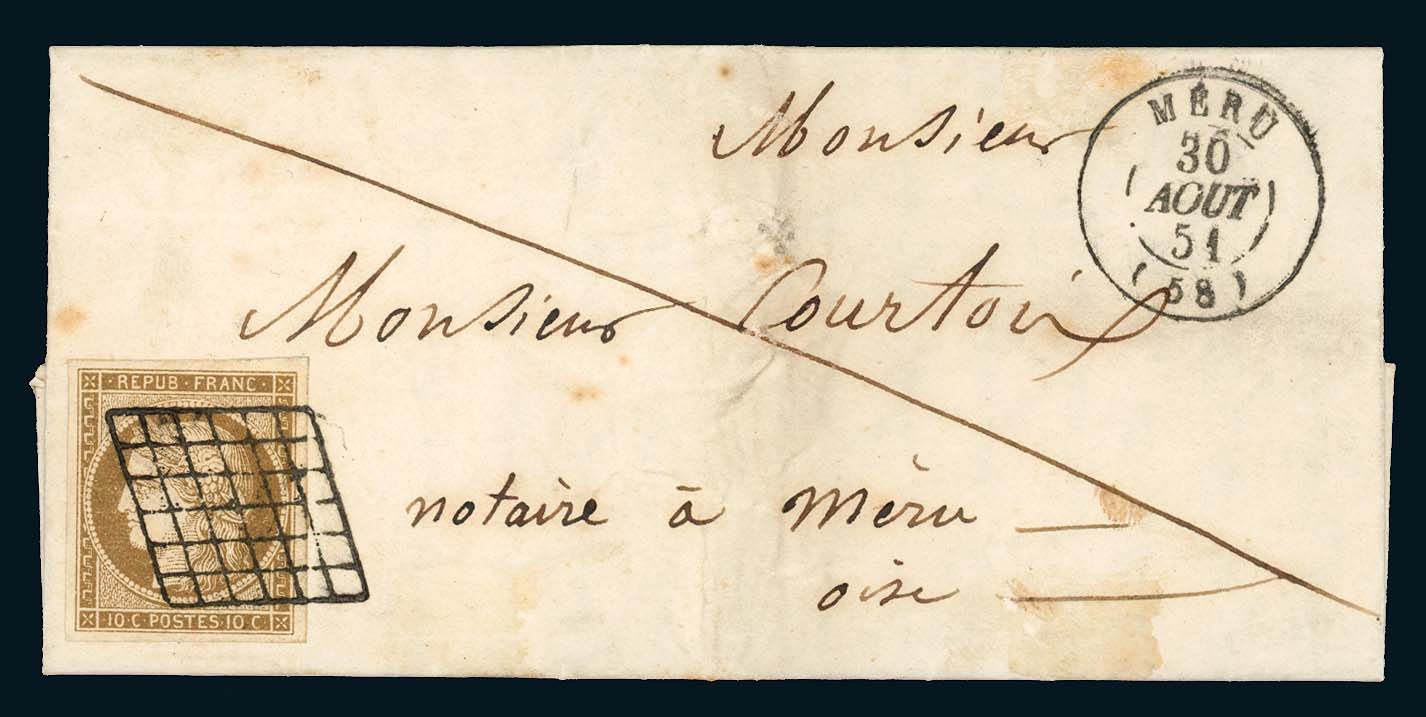 Monsieur
MÉRU
30
AOUT
51
(58)
Monsieur Courtois
REPUB · FRANC ·
notaire à Méru
oise
10 · C · POSTES · 10 C ·